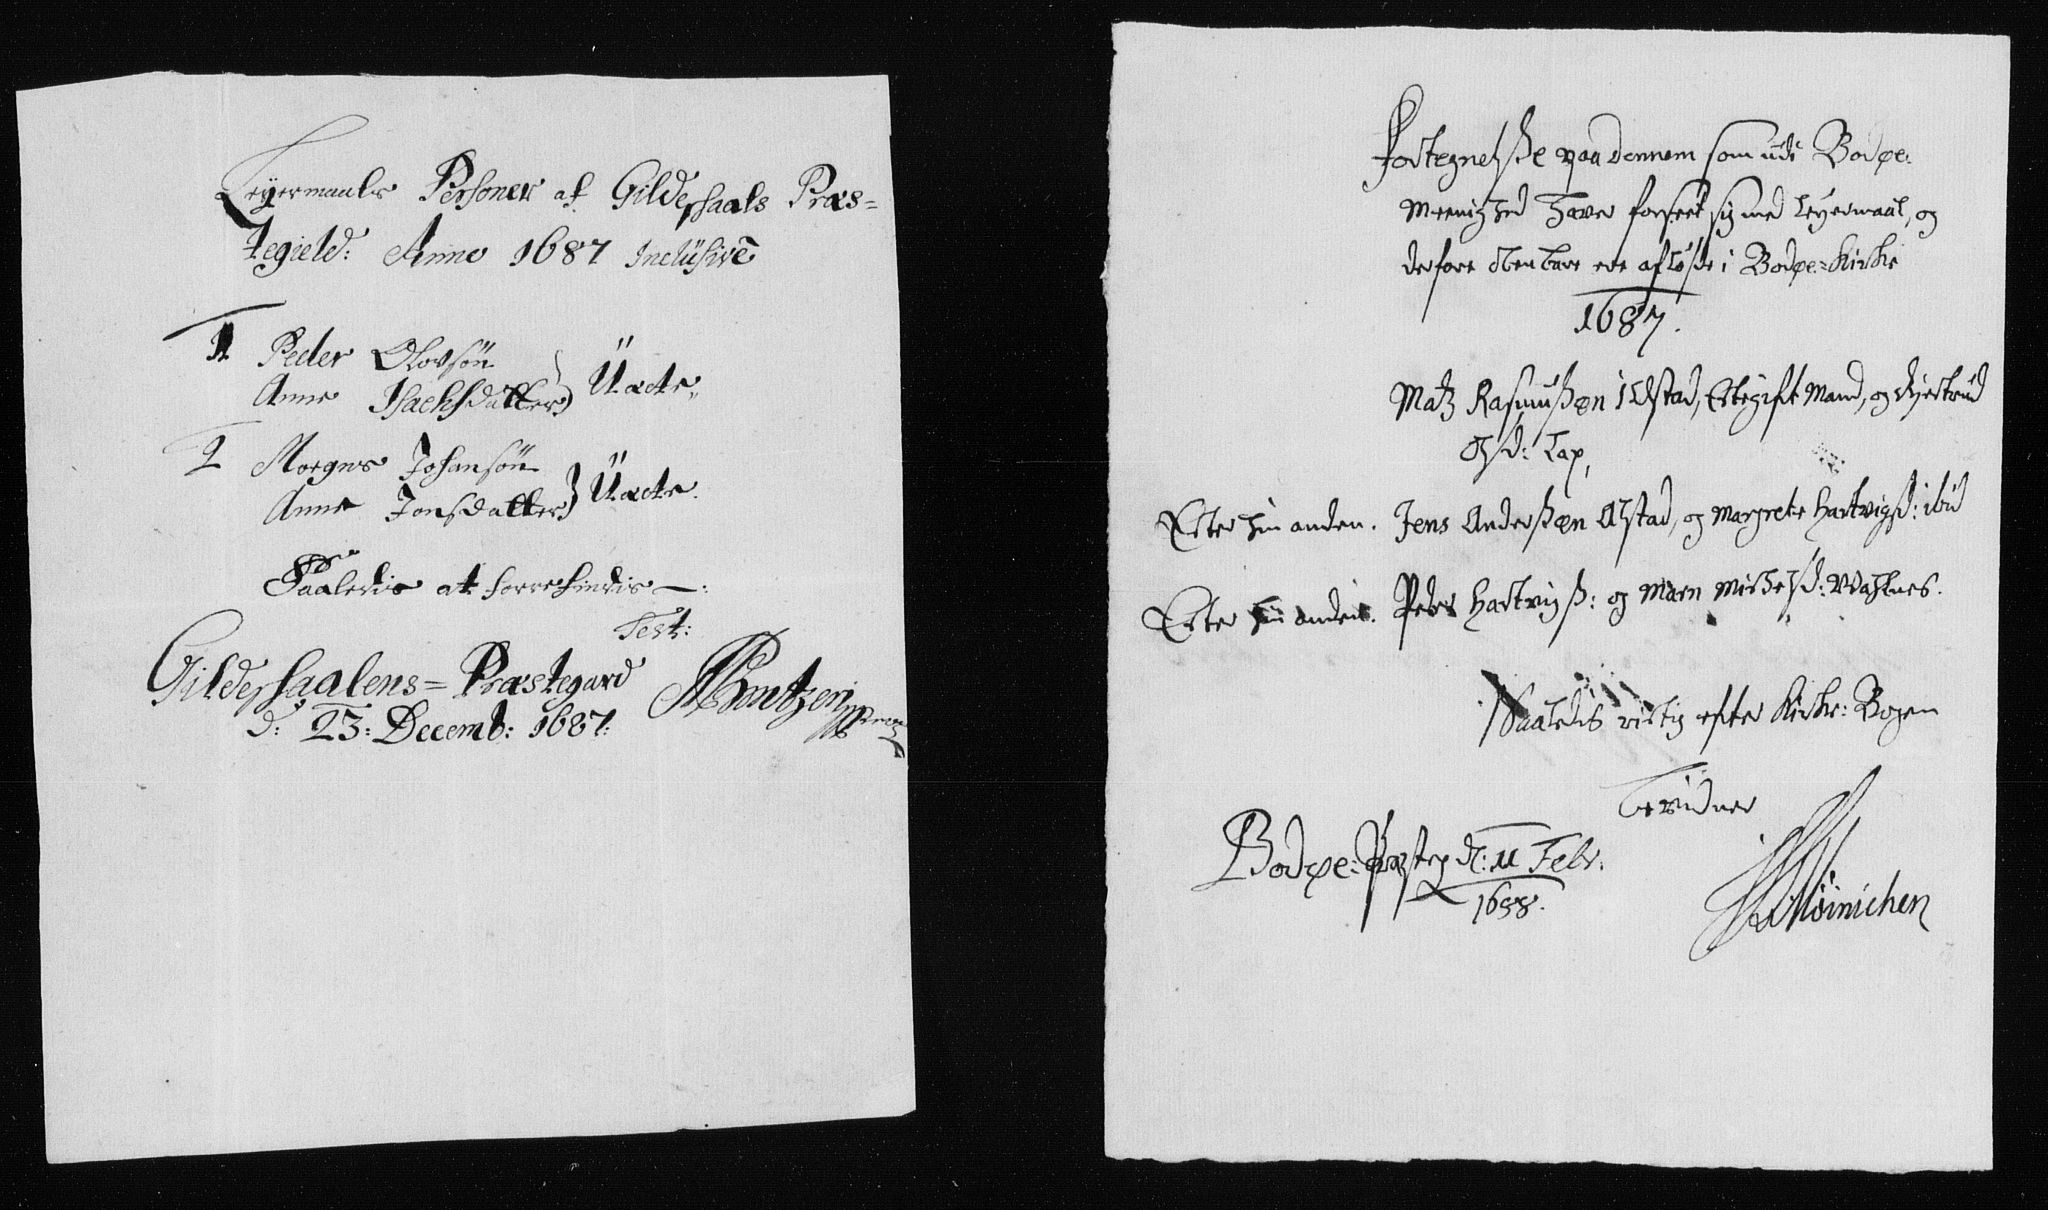 Leyermaals Personer af Gildeshaals Præs=
tegield: Anno 1687 Inclüsive
1 Peder Olovsön
Anne Isachsdatter } Üacte
1 Mogns Johansön
Anne Jonsdatter } Üacte.
Saaledis at forrefindis —:
Test:
Gildeshaalens= Præstegard
d: 23: Decemb: 1687.
Fortegnelsße paa dennem som udi Bodøe:
Meenighed haver forseet sig med leyermaal, og
derfore obenbare ere afløste i Bodøe= Kirke
1687.
Matz Rasmusßøn i Alstad, Ectegift Mand, og Gjertrud
Olsd: Lap,
Ecter hin anden. Jens Andersßøn Alstad, og Margrete Hartvigsd: ibid
Ecter hin anden. Peder Hartvigß: og Maren Michelsd:
Saaledis rictig efter Kirke: Bogen
Bevidner
Bodøe: Præsteg d: 11 Febr:
1688.
Möinichen